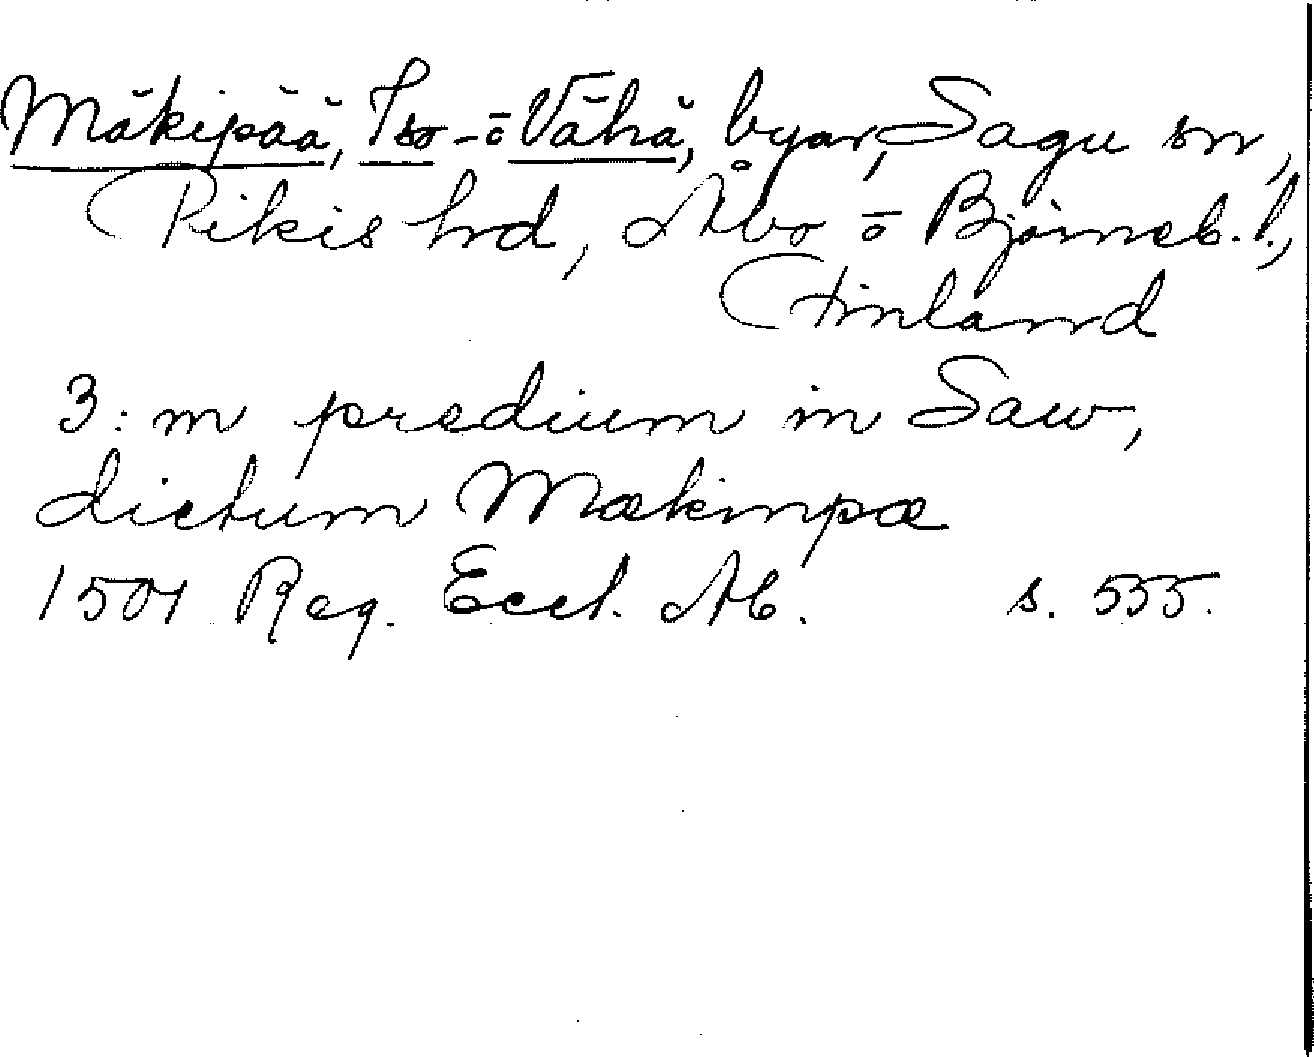 Mäkipää, Iso- ō Vähä, byar, Sagu sn,
Pikis hd, Åbo ō Björneb. l.,
Finland
3: m predium in Saw,
dictum Mækinpæ
1501 Reg. Eccl. Ab. s. 555.